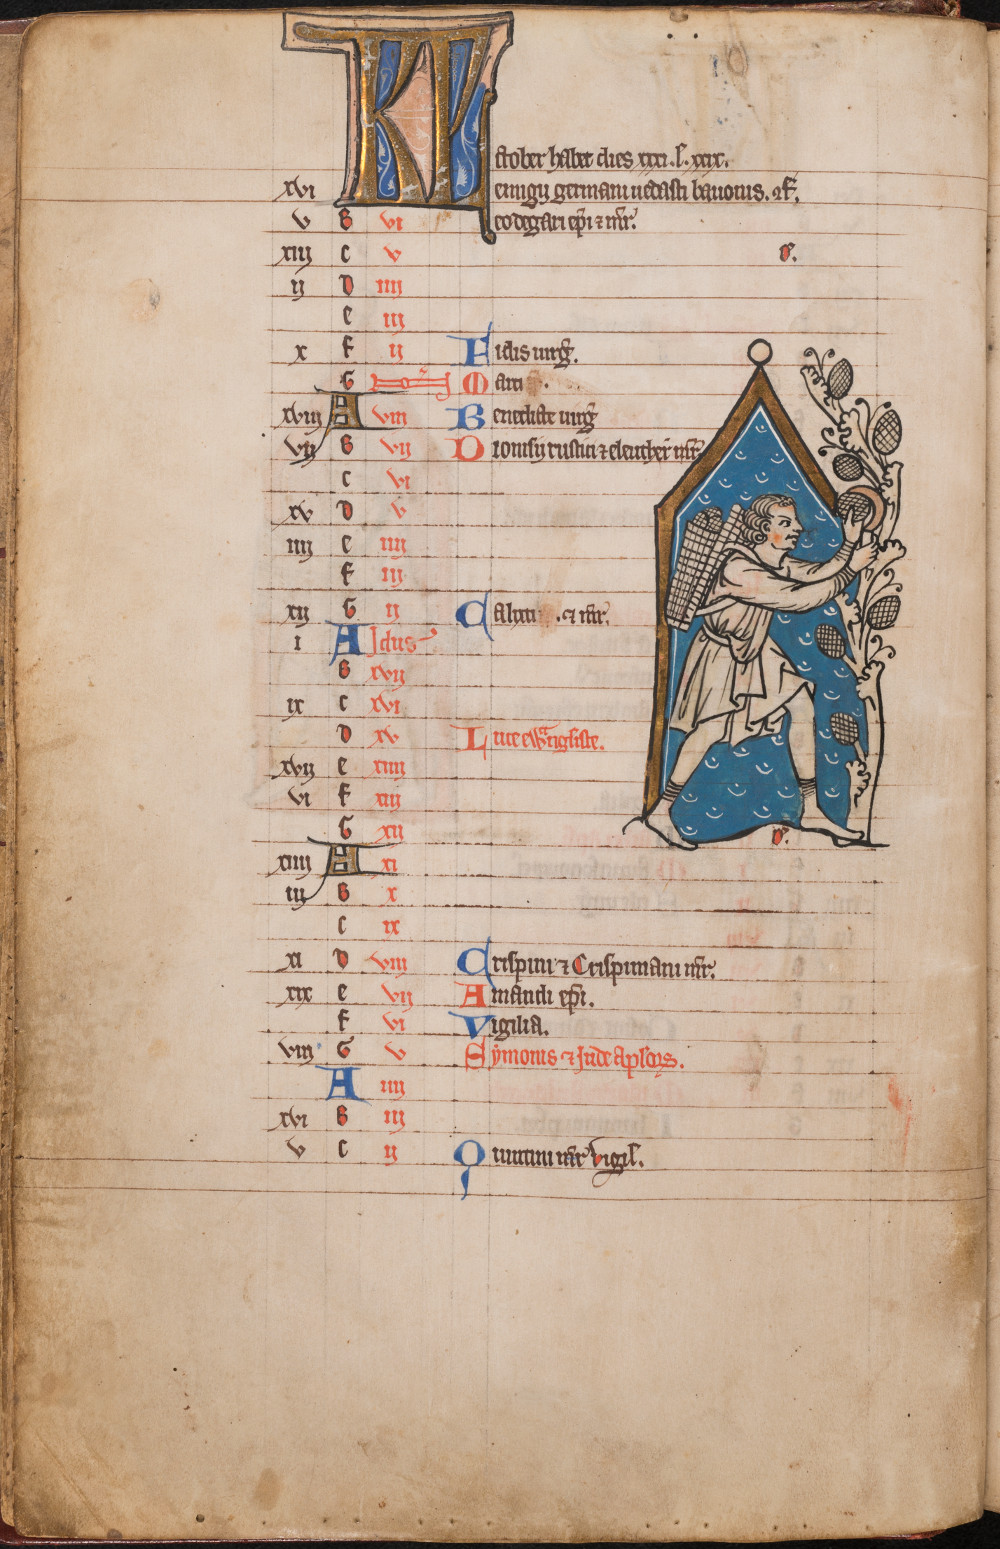 KL ctober habet dies xxxi. l. xxix.
xvi emigii germani uedasti bauonis. &
v B vi eodegarii epi & mr.
xiii C v
ii D iiii
e iii
x F ii Fidis uirg.
G Marci
xviii A viii Benedicte uirg
vii B vii Dionisii rustici & eleutherii mr
C vi
xv D v
iiii e iiii
F iii
xii G ii Calixti . & mr.
i A Idus
B xvii
ix C xvi
D xv Luce ewangliste.
xvii e xiiii
vi F xiii
G xii
xiiii A xi
iii B x
C ix
xi D viii Crispini & Crispiniani mr.
xix e vii Amandi epi.
F vi Vigilia.
viii G v Symonis & Jude aplorum.
A iiii
xvi B iii
v C ii Quintini mr Vigil.